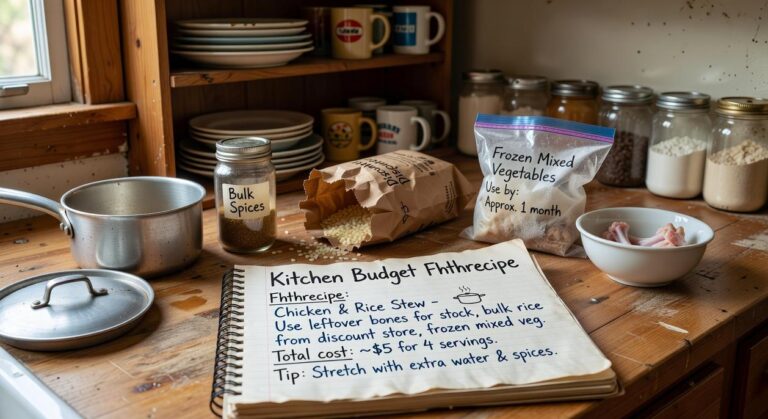 Bulk
Spices
Frozen Mixed
Vegetables
Use by:
Approx. 1 month
Kitchen Budget Fhthrecipe
Fhthrecipe:
Chicken & Rice Stew -
Use leftover bones for stock, bulk rice
from discount store, frozen mixed veg.
Total cost: ~$5 for 4 servings.
Tip: Stretch with extra water & spices.